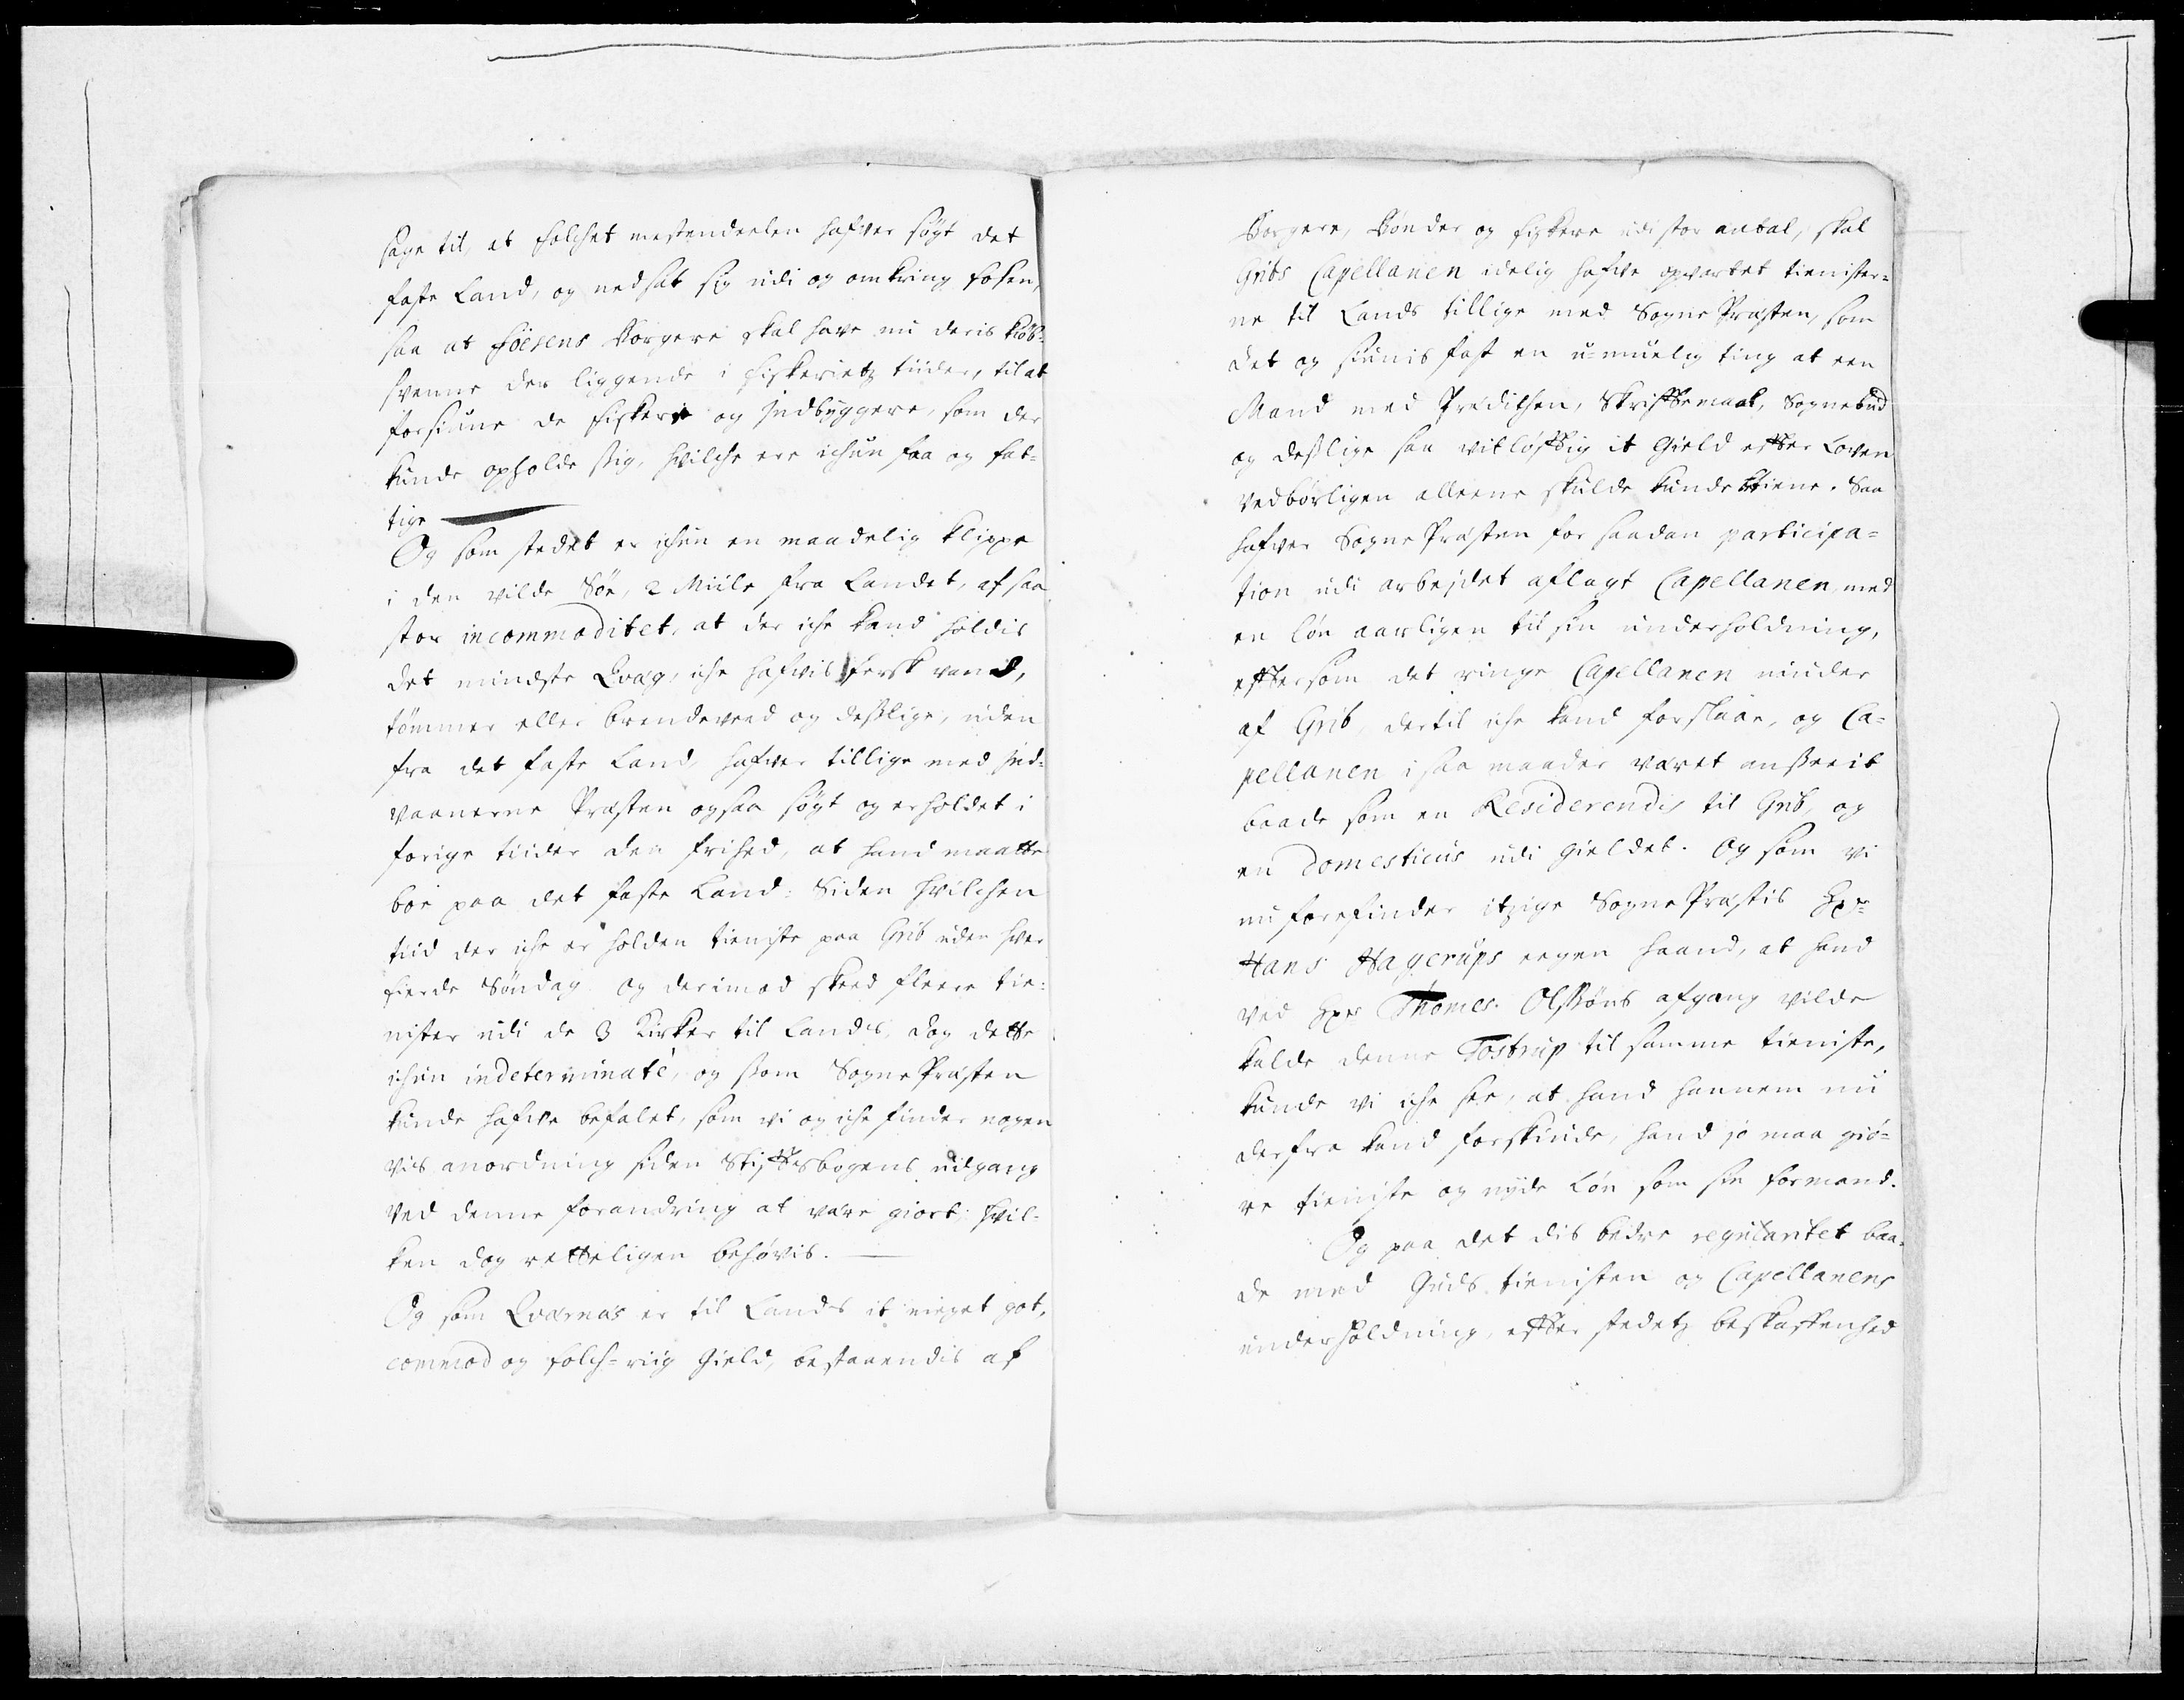 sage til, at folchet mestendeelen hafver søgt det
faste Land, og nedsat sig udi og omkring Fosen,
saa at Foesens Borgere skal have nu deris kiøb-
svenne der liggende i fiskerietz tiider, til at
forsiune de fiskere og Indbyggere, som der
kunde opholde sig, hvilche ere ichun faa og fat-
tige
Og som stedet er ichun en maadelig klippe
i den vilde Søe, 2 Miile fra Landet, af saa
stor incommoditet, at der iche kand holdis
det mindste Qvæg, iche hafvis fersk vand,
tømmer eller brendeveed og deslige, uden
fra det faste Land, hafver tillige med Ind-
vaanerne Præsten ogsaa søgt og erholdet i
forige tiider den frihed, at hand maatte
boe paa det faste Land: Siden hvilchen
tiid der iche er holden tieniste paa Grib uden hver
fierde Søndag og derimod skeed fleere tie-
nister udi de 3 Kirker til Lands, dog dette
ichun indeterminatè, og som Sogne Præsten
kunde hafve befalet, som vi og iche finder nogen
vis anordning siden Stiftsbogens udgang
ved denne forandring at være giort; hvil-
ken dog retteligen behøvis.
Og som Qværnæs er til Lands it meget got,
commod og folch-riig Gield, bestaaendis af
Borgere, Bønder og fiskere udi stor antal, skal
Gribs Capellanen idelig hafve opvartet tienister-
ne til Lands tillige med Sogne Præsten, som
det og siunis fast en u-muelig ting at een
Mand med Prædichen, Skriftemaal, Sognebud
og deslige saa vitløftig it Gield efter Loven
vedbørligen alleene skulde kunde tiene. Saa
hafver Sogne Præsten for saadan participa-
tion udi arbejdet aflagt Capellanen, med
en løn aarligen til sin underholdning,
eftersom det ringe Capellanen niuder
af Grib, dertil iche kand forslaae, og Ca-
pellanen i saa maader været anseet
baade som en Residerendis til Grib, og
en Domesticus udi gieldet. Og som vi
nu forefinder itzige Sogne Præstis Hr.
Hans Hagerups eegen haand, at hand
ved Hr Thomes Olssøns afgang vilde
kalde denne Tostrup til samme tieniste,
kunde vi iche see, at hand hannem nu
derfra kand forskiude, hand jo maa giø-
re tieniste og nyde Løn som sin formand.
Og paa det dis bedre regularitet baa-
de med Guds tienisten og Capellanens
underholdning, efter stedetz beskaffenhed